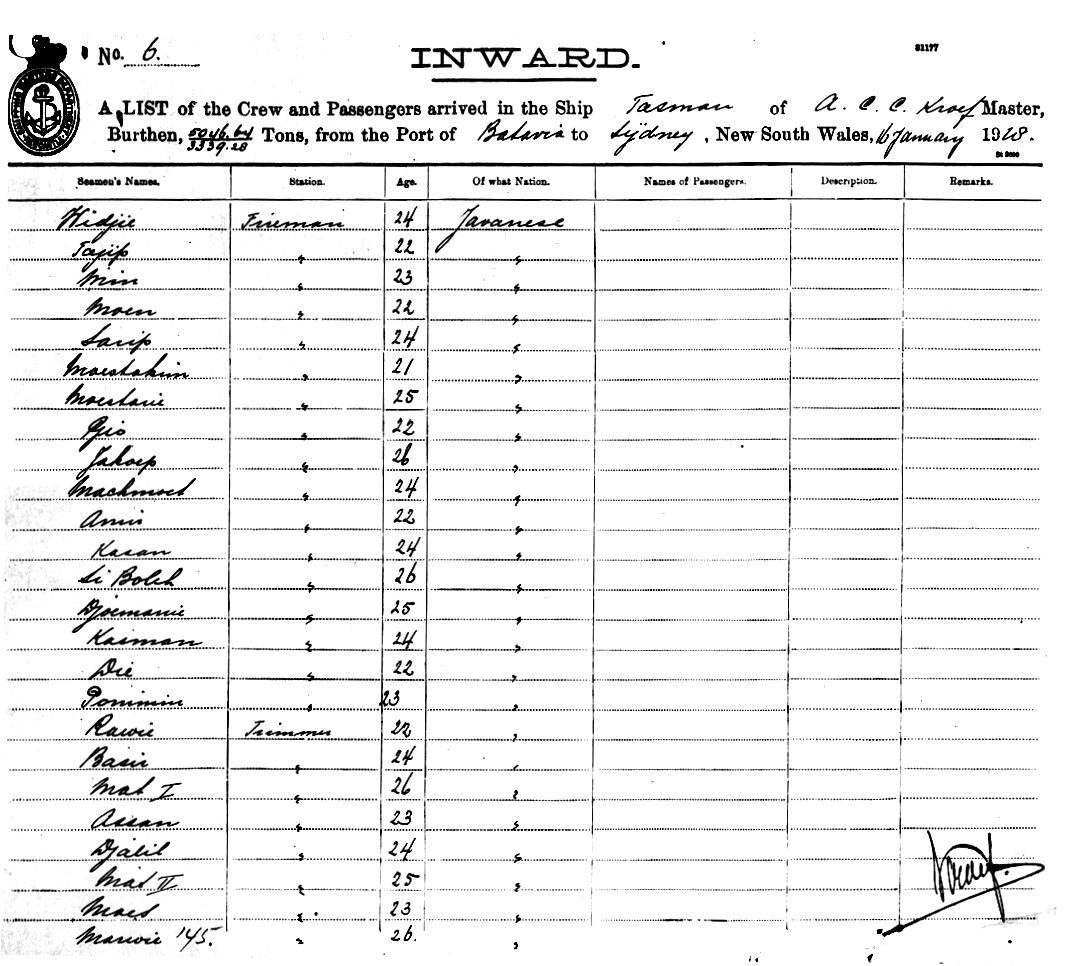 No. 6.
INWARD.
31177
A LIST of the Crew and Passengers arrived in the Ship Tasman of A. C. C. Kroef Master,
Burthen, 5046.64 / 3339.28 Tons, from the Port of Batavia to Sydney, New South Wales, 16 January 1928.
Seamen's Names. Station. Age. Of what Nation. Names of Passengers. Description. Remarks.
Hidjie Fireman 24 Javanese
Tajip " 22 "
Min " 23 "
Moen " 22 "
Sarip " 24 "
Moestakim " 21 "
Moestarie " 25 "
" 22 "
Jakoep " 26 "
Machmoet " 24 "
Amir " 22 "
Kasan " 24 "
Si Boleh " 26 "
Djoemanie " 25 "
Kasiman " 24 "
Die " 22 "
Ponimin " 23 "
Rawie Trimmer 22 "
Basir " 24 "
Mat I " 26 "
Assan " 23 "
Djalil " 24 "
Mat II " 25 "
Moes " 23 "
Marwie 145. " 26. "